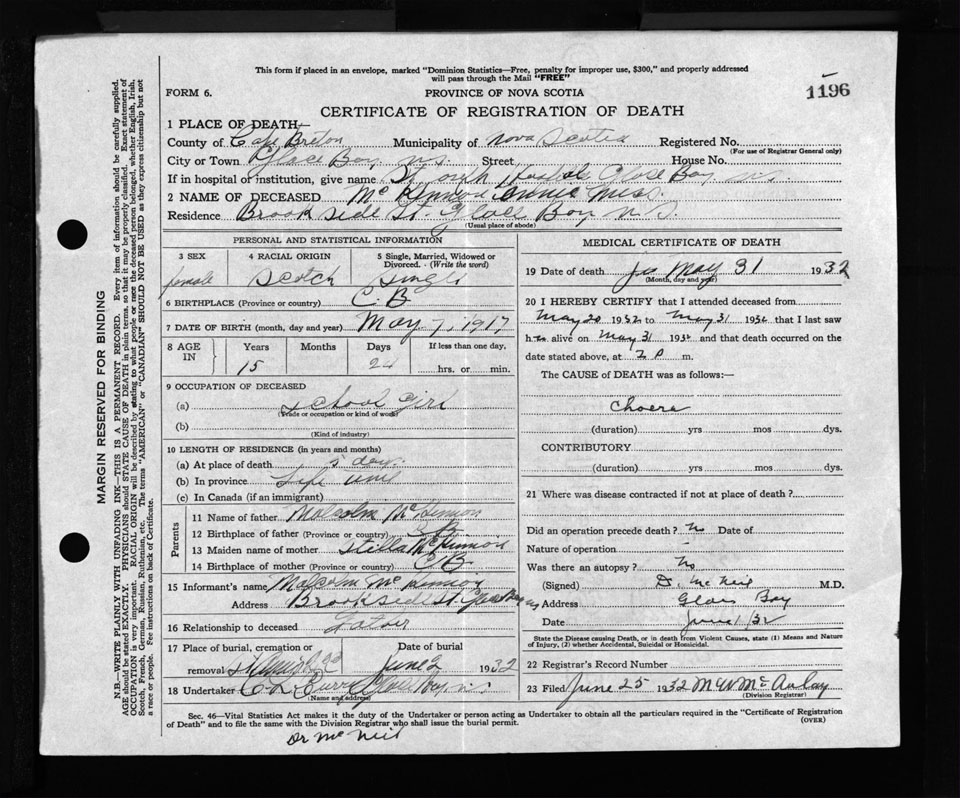 This form if placed in an envelope, marked "Dominion Statistics—Free, penalty for improper use, $300," and properly addressed
will pass through the Mail "FREE"
FORM 6.
PROVINCE OF NOVA SCOTIA
1196
CERTIFICATE OF REGISTRATION OF DEATH
1 PLACE OF DEATH—
County of Cape Breton Municipality of Nova Scotia Registered No.
(For use of Registrar General only)
City or Town Glace Bay N.S. Street House No.
If in hospital or institution, give name St Hospital Glace Bay N.S.
2 NAME OF DECEASED Miss
Residence Brook side St. Glace Bay N.S.
(Usual place of abode)
PERSONAL AND STATISTICAL INFORMATION
3 SEX
female
4 RACIAL ORIGIN
Scotch
5 Single, Married, Widowed or
Divorced. - (Write the word)
Single
6 BIRTHPLACE (Province or country) C B
7 DATE OF BIRTH (month, day and year) May 7, 1917
8 AGE IN
Years
15
Months
Days
24
If less than one day,
hrs. or min.
9 OCCUPATION OF DECEASED
(a) School Girl
(Trade or occupation or kind of work)
(b)
(Kind of industry)
10 LENGTH OF RESIDENCE (in years and months)
(a) At place of death days
(b) In province Life time
(c) In Canada (if an immigrant)
Parents
11 Name of father Malcolm McKinnon
12 Birthplace of father (Province or country) C B
13 Maiden name of mother Stella McKinnon
14 Birthplace of mother (Province or country) C B
15 Informant's name Malcolm McKinnon
Address Brookside St. Glace Bay NS
16 Relationship to deceased Father
17 Place of burial, cremation or
removal
Date of burial
June 2 1932
18 Undertaker Glace Bay N.S.
(Name and address)
MEDICAL CERTIFICATE OF DEATH
19 Date of death May 31 1932
(Month, day and year)
20 I HEREBY CERTIFY that I attended deceased from
May 20 1932 to May 31 1932 that I last saw
h alive on May 31 1932 and that death occurred on the
date stated above, at 2 P m.
The CAUSE of DEATH was as follows:—
Choera
(duration) yrs mos dys.
CONTRIBUTORY
(duration) yrs mos dys.
21 Where was disease contracted if not at place of death?
Did an operation precede death? No Date of
Nature of operation
Was there an autopsy? No
(Signed) D. McNeil M.D.
Address Glace Bay
Date June 1/32
State the Disease causing Death, or in death from Violent Causes, state (1) Means and Nature
of Injury, (2) whether Accidental, Suicidal or Homicidal.
22 Registrar's Record Number
23 Filed June 25 1932 M W McAulay
(Division Registrar)
Sec. 46—Vital Statistics Act makes it the duty of the Undertaker or person acting as Undertaker to obtain all the particulars required in the "Certificate of Registration
of Death" and to file the same with the Division Registrar who shall issue the burial permit.
(OVER)
Dr McNeil
MARGIN RESERVED FOR BINDING
N.B.—WRITE PLAINLY WITH UNFADING INK—THIS IS A PERMANENT RECORD. Every item of information should be carefully supplied.
AGE should be stated EXACTLY. PHYSICIANS should STATE CAUSE OF DEATH in plain terms, so that it may be properly classified. Exact statement of
OCCUPATION is very important. RACIAL ORIGIN will be described by stating to what people or race the deceased person belonged, whether English, Irish,
Scotch, French, German, Russian, Ruthenian, etc. The terms "AMERICAN" or "CANADIAN" SHOULD NOT BE USED as they express citizenship but not
a race or people. See instructions on back of Certificate.